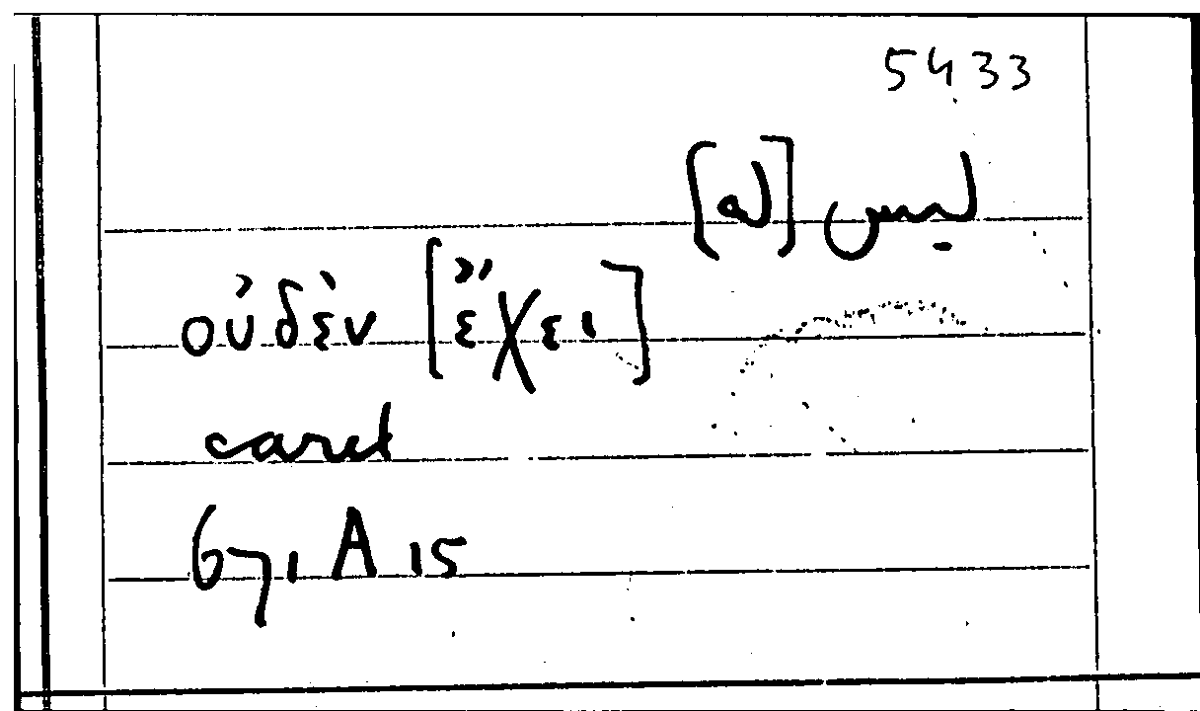 5433
ليس [له]
οὐδὲν [ἔχει]
caret
671 A 15